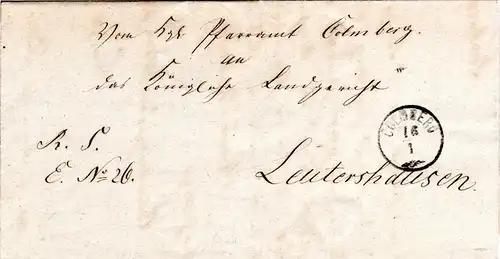 Vom Kgl. Pfarramt Colmberg.
an
das Königliche Landgericht
COLMBERG
16
1
R. S.
E. No 26.
Leutershausen.